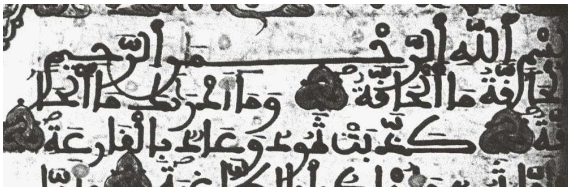 بِسْمِ اللّٰهِ الرَّحْمٰنِ الرَّحِيمِ
الْحَاقَّةُ مَا الْحَاقَّةُ وَمَا أَدْرَىكَ مَا الْحَا
قَّةُ كَذَّبَتْ ثَمُودُ وَعَادٌ بِالْقَارِعَةِ